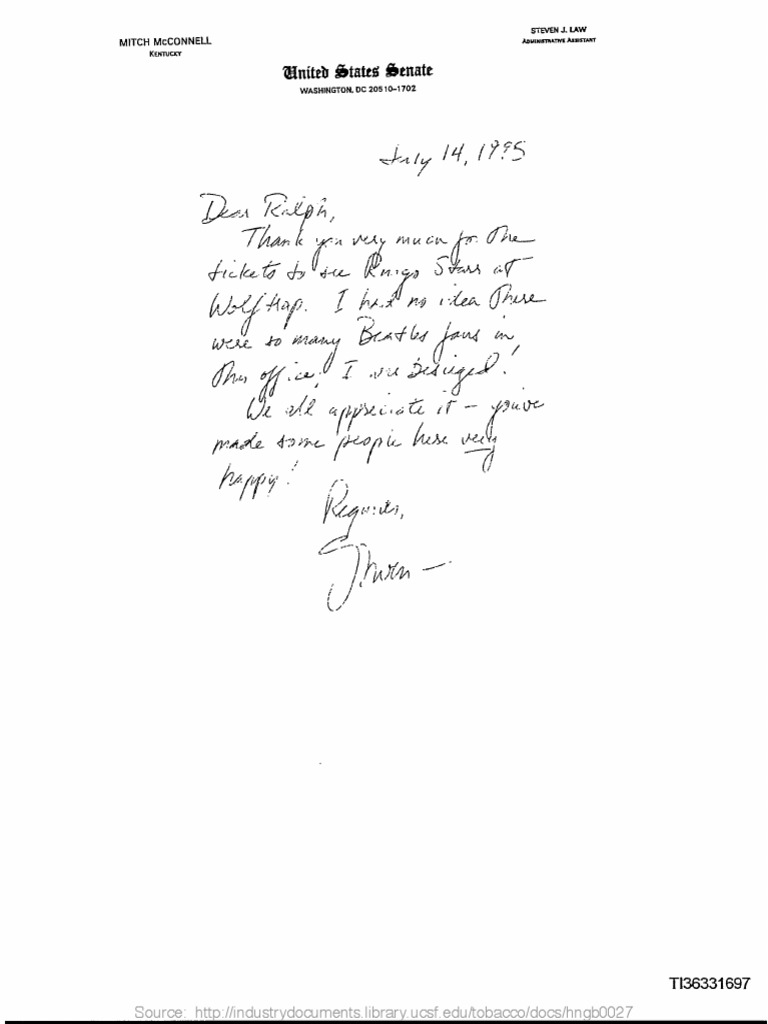 MITCH McCONNELL
KENTUCKY
STEVEN J. LAW
ADMINISTRATIVE ASSISTANT
United States Senate
WASHINGTON, DC 20510-1702
July 14, 1995
Dear Ralph,
Thank you very much for the
tickets to see Ringo Starr at
Wolftrap. I had no idea there
were so many Beatles fans in
this office; I was besieged!
We all appreciate it - you've
made some people here very
happy!
Regards,
Steven -
TI36331697
Source: http://industrydocuments.library.ucsf.edu/tobacco/docs/hngb0027